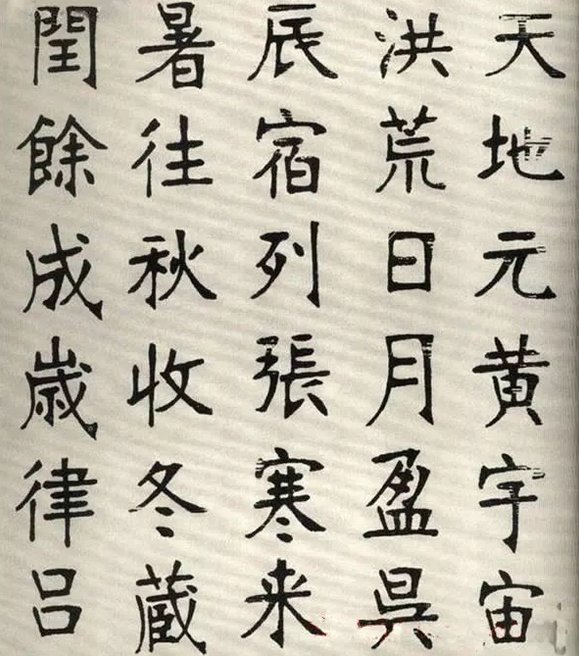 天地元黄宇宙
洪荒日月盈昃
辰宿列張寒来
暑往秋收冬蔵
閏餘成歳律吕